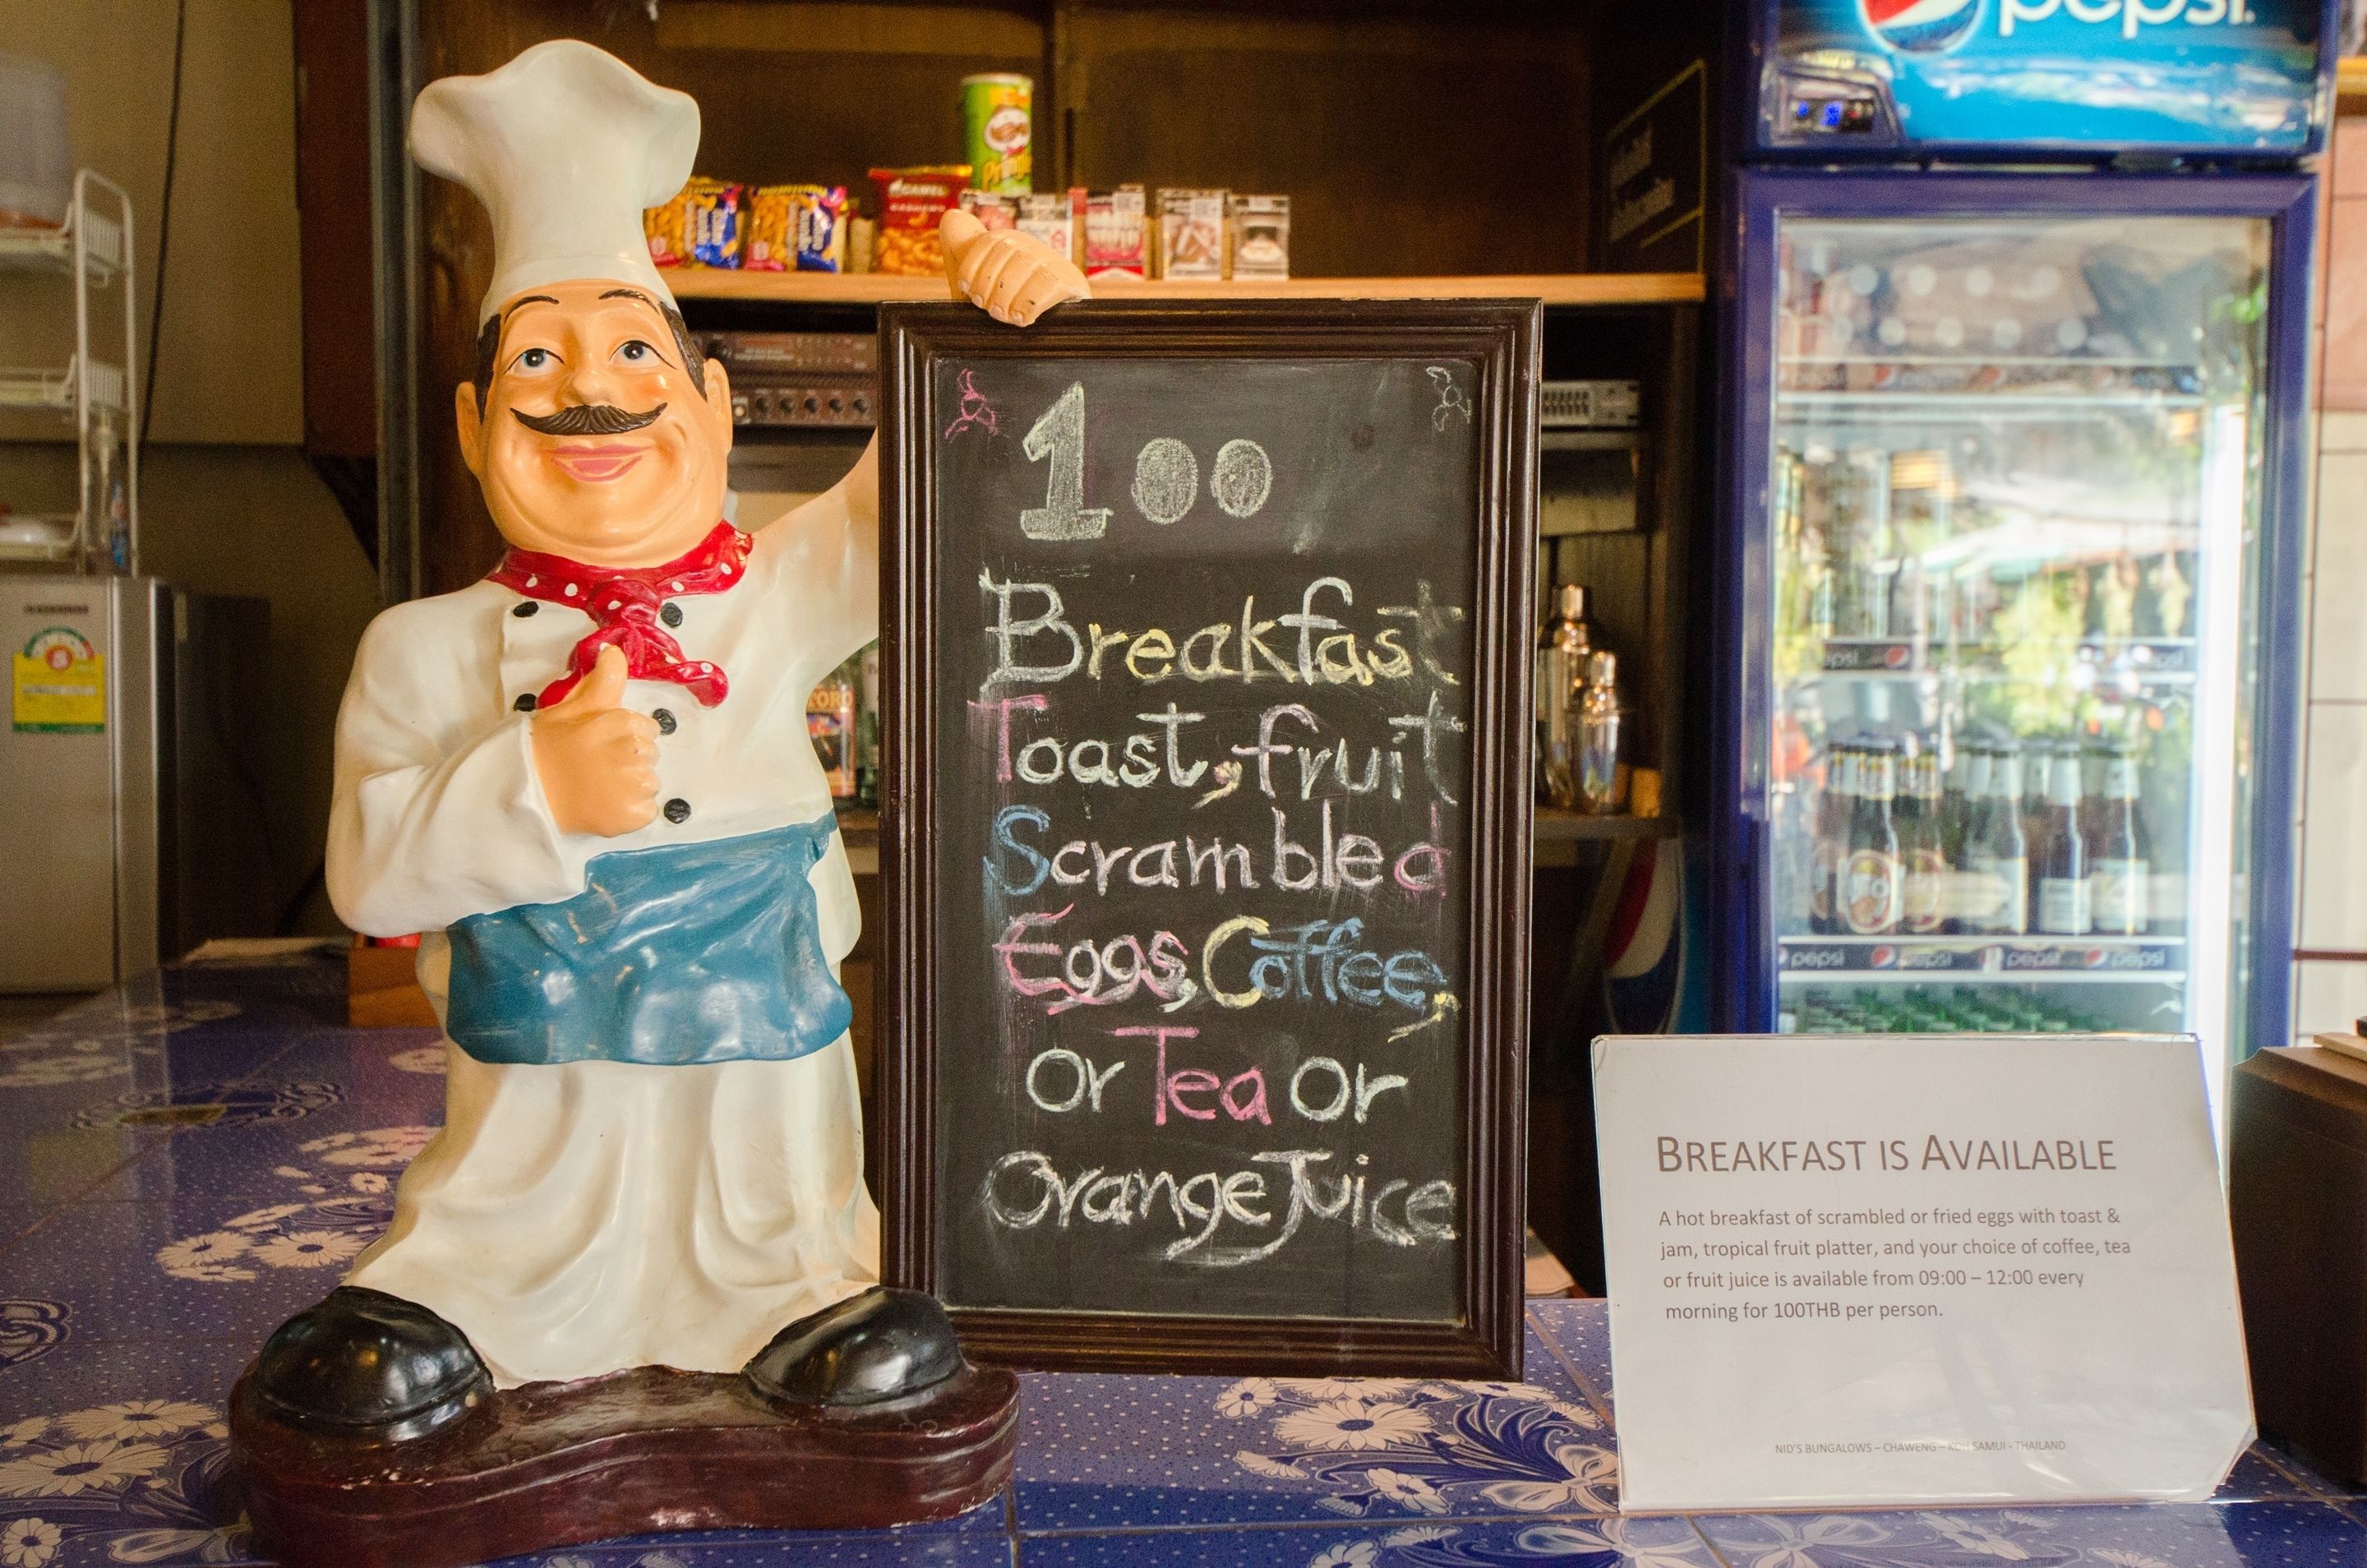 pepsi.
Pringles
CAMEL
CASHEWS
100
Breakfast
Toast, fruit
Scrambled
Eggs, Coffee,
Or Tea Or
Orange Juice
TORO
pepsi
pepsi pepsi pepsi
BREAKFAST IS AVAILABLE
A hot breakfast of scrambled or fried eggs with toast &
jam, tropical fruit platter, and your choice of coffee, tea
or fruit juice is available from 09:00 – 12:00 every
morning for 100THB per person.
NID'S BUNGALOWS – CHAWENG – KOH SAMUI - THAILAND